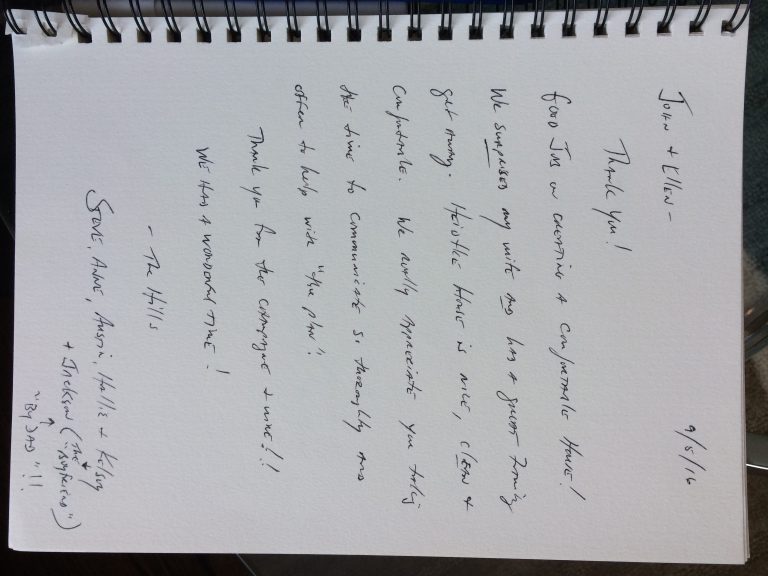 9/5/16
JOHN + EllEN -
Thank You!
GOOD JOB IN CREATING A COMFORTABLE HOUSE!
We SURPRISED my wife AND HAD A GREAT FAMILY
get away. House is NICE, CLEAN +
Comfortable. We really APPRECIATE you taking
the time to communicate so thoroughly AND
often to help with "the plan".
Thank you for the champagne + wine!!
WE HAD A WONDERFUL TIME!
- The Hills
STEVE, ANNE, AUSTIN, Hallie + Kelsey
+ JACKSON (THE "BOYFRIEND")
"BY DAD"!!